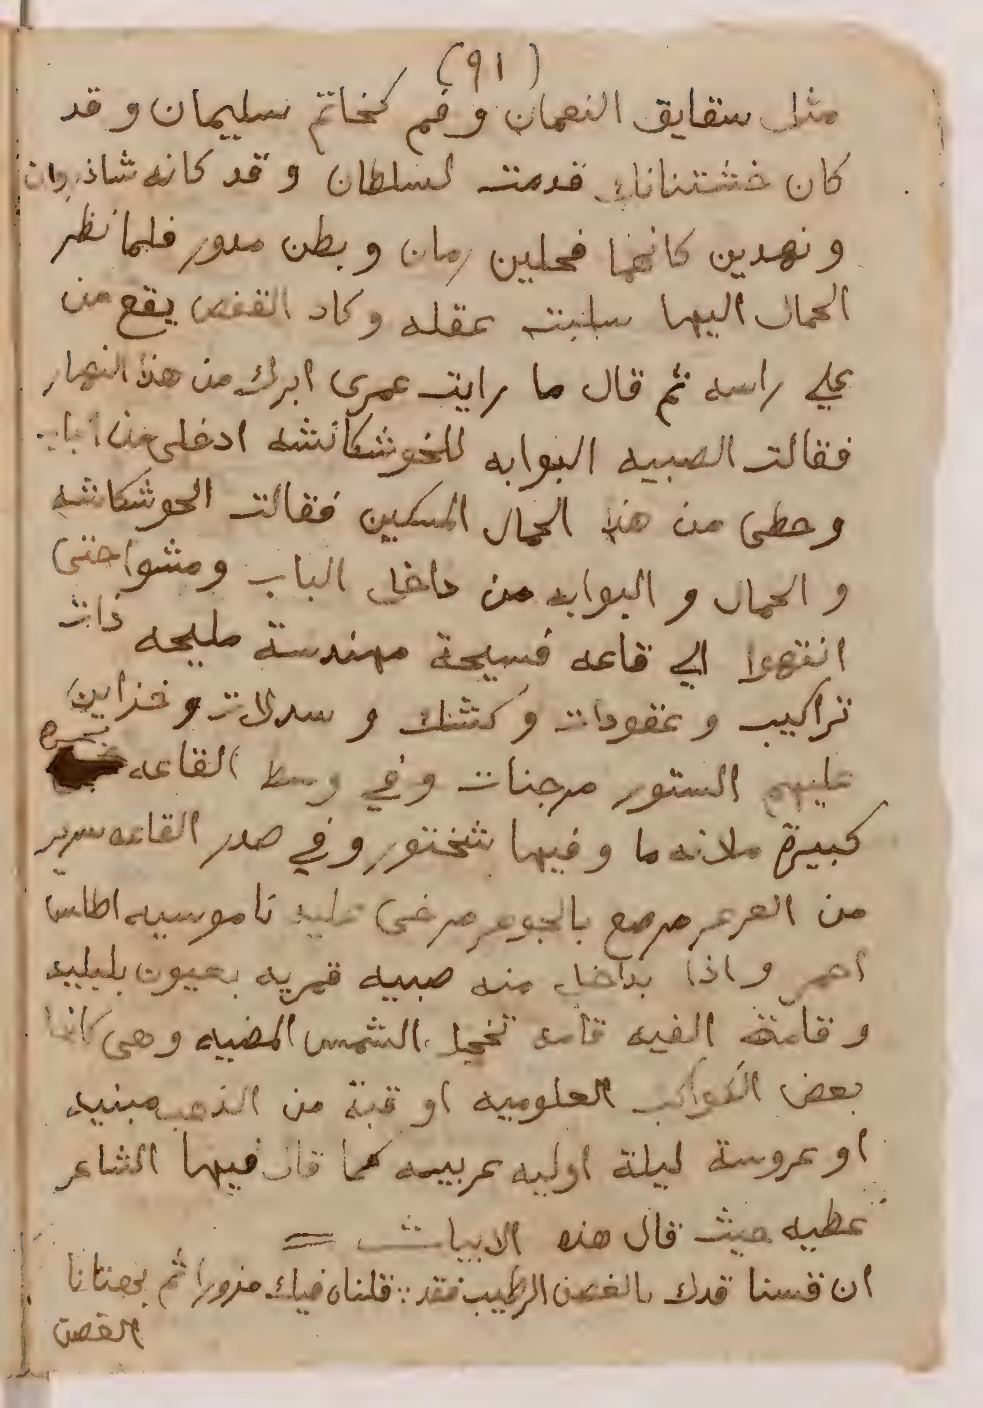 (٩١)
مثل سقايق النعمان و فم كخاتم سليمان و قد
كان خشتنانك قدمت لسلطان و قد كانه شاذروان
و نهدين كانهما فحلين رمان و بطن مدور فلما نظر
الحمال اليها سلبت عقله و كاد القفص يقع من
علي راسه ثم قال ما رايت عمرى ابرك من هذا النهار
فقالت الصبيه البوابه للخوشكانشه ادخلى من الباب
و حطى من هذا الحمال المسكين فقالت الحوشكاشه
و الحمال و البوابه من داخل الباب و مشوا حتى
انتهوا الي قاعه فسيحة مهندسة مليحه ذات
تراكيب و عقودات و كشك و سدلات و خزاين
عليهم الستور مرجنات و في وسط القاعه بحره
كبيرة ملانه ما و فيها شختور و في صدر القاعه سرير
من العرعر مرصع بالجوهر مرخى عليه ناموسيه اطلس
احمر و اذا بداخل منه صبيه قمريه بعيون بلبليه
و قامة الفيه قامه تخجل الشمس المضيه و هى كانها
بعض الكواكب العلوميه او قبة من الذهب مبنيه
او عروسة ليلة اوليه عربيه كما قال فيها الشاعر
عطيه حيث قال هذه الابيات =
ان قسنا قدك بالغصن الرطيب فقد ∴ قلنان فيك مزورا ثم بهتانا
الغصن